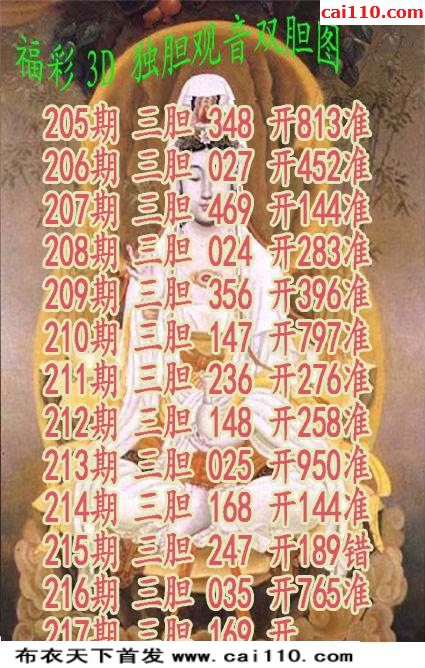 cai110.com
福彩3D 独胆观音双胆图
205期 三胆 348 开813准
206期 三胆 027 开452准
207期 三胆 469 开144准
208期 三胆 024 开283准
209期 三胆 356 开396准
210期 三胆 147 开797准
211期 三胆 236 开276准
212期 三胆 148 开258准
213期 三胆 025 开950准
214期 三胆 168 开144准
215期 三胆 247 开189错
216期 三胆 035 开765准
217期 三胆 169 开
布衣天下首发 www.cai110.com